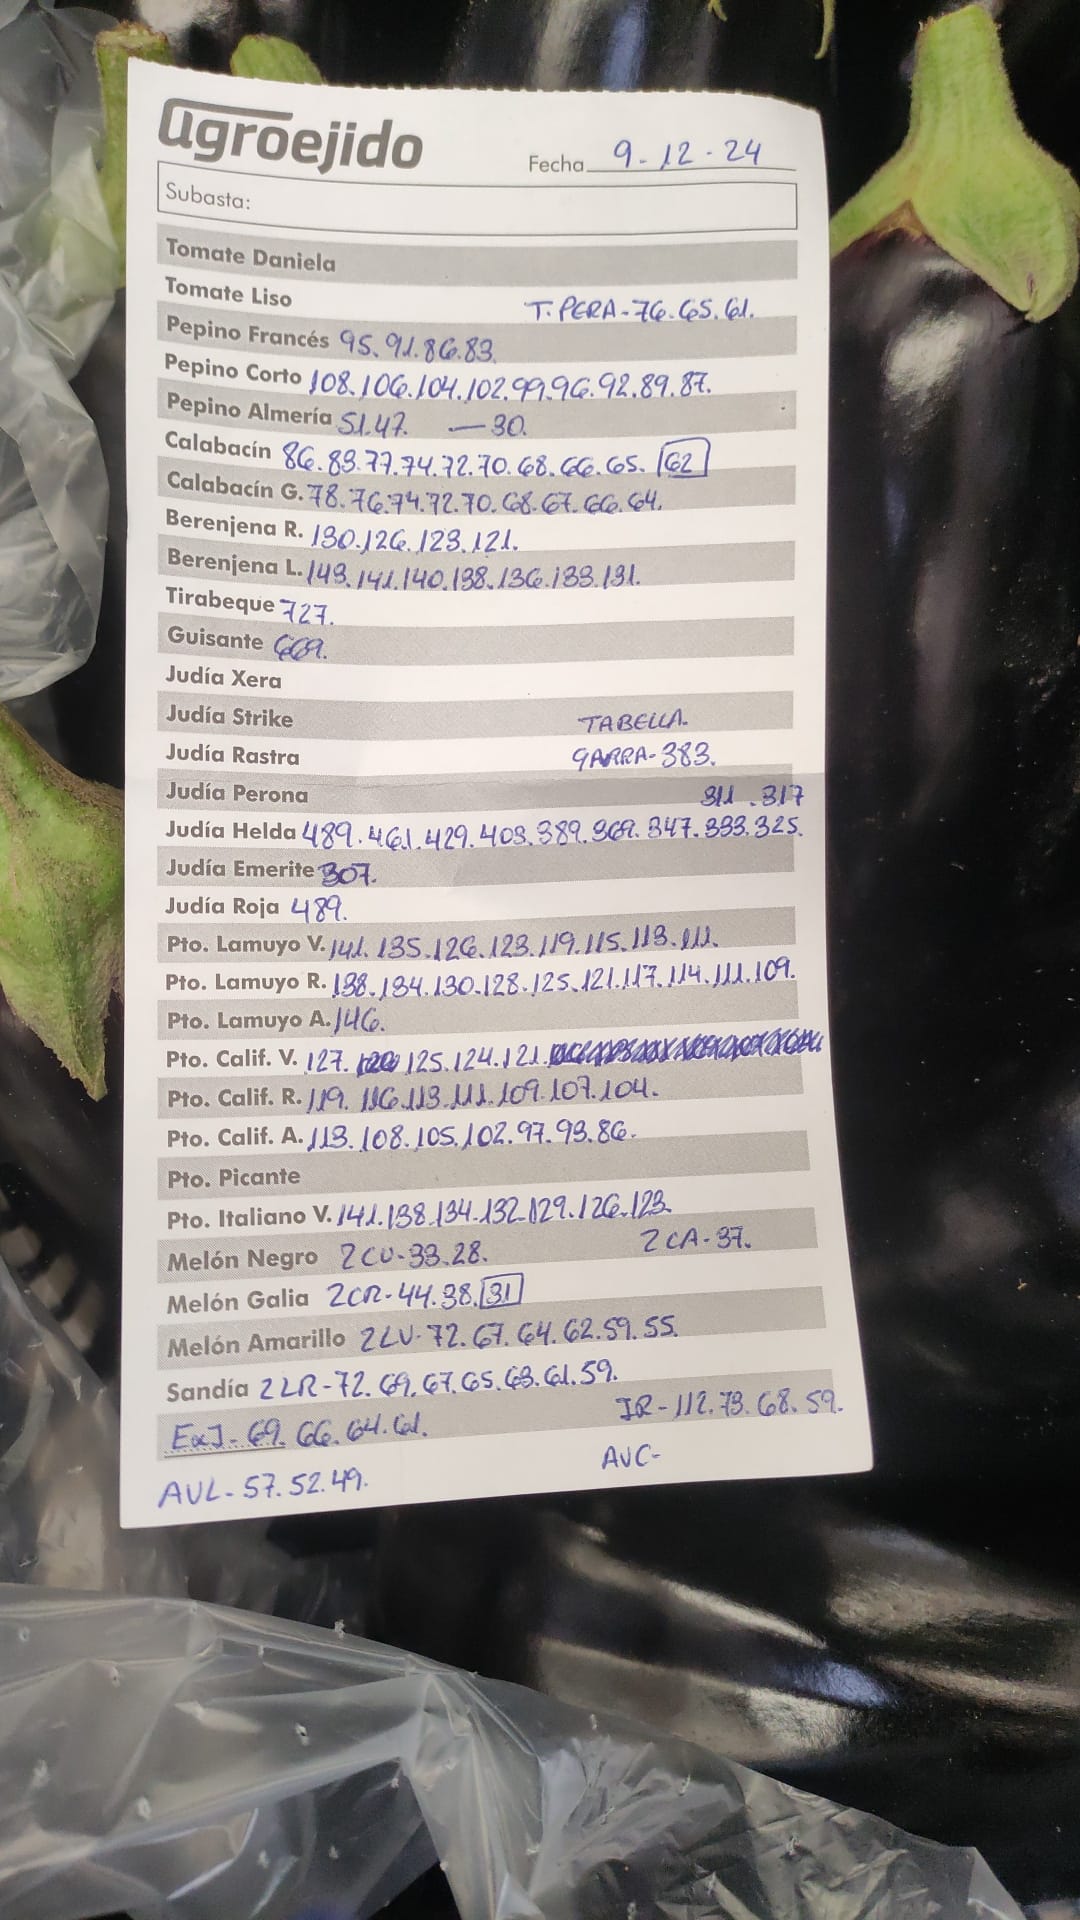 agroejido
Fecha 9-12-24
Subasta:
Tomate Daniela
Tomate Liso T. PERA-76.65.61.
Pepino Francés 95.91.86.83.
Pepino Corto 108.106.104.102.99.96.92.89.87.
Pepino Almería 51.47. —30.
Calabacín 86.83.77.74.72.70.68.66.65. 62
Calabacín G. 78.76.74.72.70.68.67.66.64.
Berenjena R. 130.126.123.121.
Berenjena L. 143.141.140.138.136.133.131.
Tirabeque 727.
Guisante 669.
Judía Xera
Judía Strike TABELLA.
Judía Rastra GARRA-383.
Judía Perona 311.317
Judía Helda 489.461.429.403.389.369.347.333.325.
Judía Emerite 307.
Judía Roja 489.
Pto. Lamuyo V. 141.135.126.123.119.115.113.111.
Pto. Lamuyo R. 138.134.130.128.125.121.117.114.111.109.
Pto. Lamuyo A. 146.
Pto. Calif. V. 127. 125.124.121.
Pto. Calif. R. 119.116.113.111.109.107.104.
Pto. Calif. A. 113.108.105.102.97.93.86.
Pto. Picante
Pto. Italiano V. 141.138.134.132.129.126.123.
Melón Negro 2CV-33.28. 2CA-37.
Melón Galia 2CR-44.38. 31
Melón Amarillo 2LV-72.67.64.62.59.55.
Sandía 2LR-72.69.67.65.63.61.59.
IR-112.73.68.59.
69.66.64.61.
AVL-57.52.49. AVC-